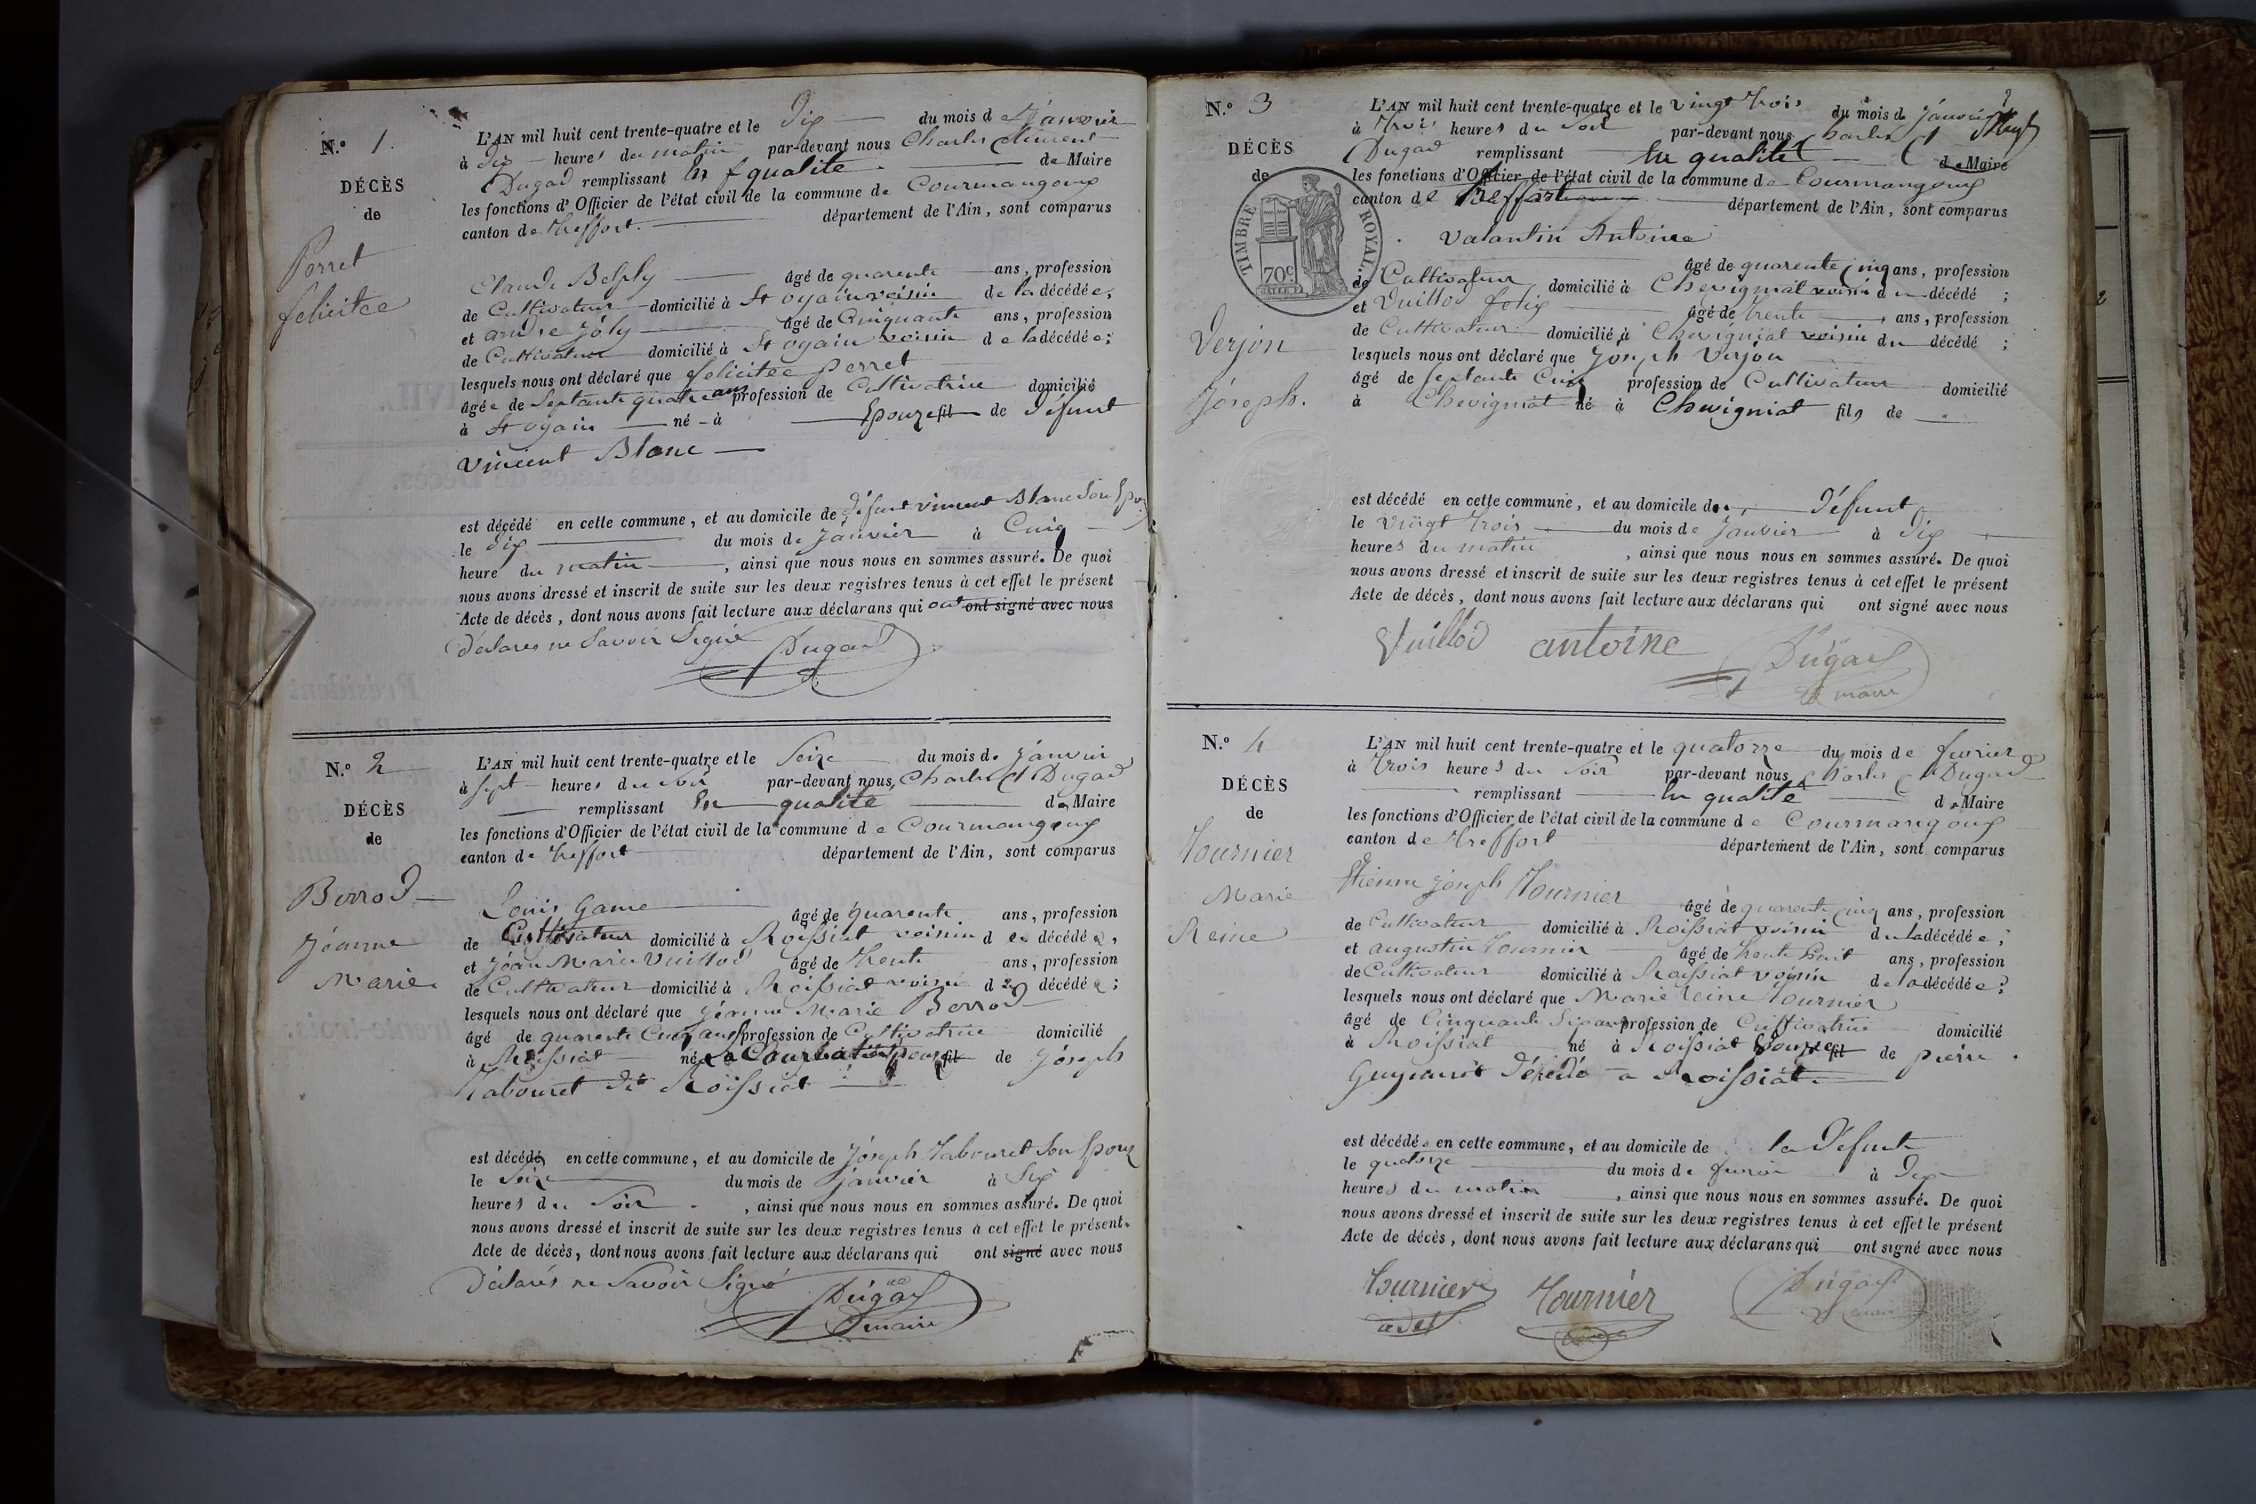 N.° 1.
DÉCÈS
de
Perret
felicitée
L'AN mil huit cent trente-quatre et le Dix du mois de Janvier
à dix heures du matin par-devant nous Charles Clément
Dugad remplissant en qualité de Maire
les fonctions d'Officier de l'état civil de la commune de Courmangoux
canton de Treffort département de l'Ain, sont comparus
Claude âgé de quarente ans, profession
de Cultivateur domicilié à St oyain voisin de la décédée,
et andre Joly âgé de Cinquante ans, profession
de Cultivateur domicilié à St oyain voisin de la décédée;
lesquels nous ont déclaré que felicitée perret
âgée de Septante quatre ans profession de Cultivatrice domicilié
à St oyain né à Epouze fil de Défunt
Vincent Blanc
est décédé en cette commune, et au domicile de Défunt vincent Blanc Son Epoux
le dix du mois de Janvier à Cinq
heure du matin, ainsi que nous nous en sommes assuré. De quoi
nous avons dressé et inscrit de suite sur les deux registres tenus à cet effet le présent
Acte de décès, dont nous avons fait lecture aux déclarans qui ont ont signé avec nous
Déclarés ne Savoir Signé Dugad
N.° 2
DÉCÈS
de
Berrod
Jéanne
Marie
L'AN mil huit cent trente-quatre et le Seize du mois de Janvier
à Sept heures du Soir par-devant nous, Charles Cl Dugad
remplissant En qualité de Maire
les fonctions d'Officier de l'état civil de la commune de Courmangoux
canton de Treffort département de l'Ain, sont comparus
Louis Game âgé de quarente ans, profession
de Cultivateur domicilié à Roissiat voisin de décédé,
et Jéan Marie Vuillod âgé de Trente ans, profession
de Cultivateur domicilié à Roissiat voisin de décédé;
lesquels nous ont déclaré que Jéanne Marie Berrod
âgé de quarente Cinq ans profession de Cultivatrice domicilié
à Roissiat née a Epouze fil de Joseph
Tabouret dit Roissiat
est décédé en cette commune, et au domicile de Joseph Tabouret Son Epoux
le Seize du mois de Janvier à Six
heures du Soir, ainsi que nous nous en sommes assuré. De quoi
nous avons dressé et inscrit de suite sur les deux registres tenus à cet effet le présent
Acte de décès, dont nous avons fait lecture aux déclarans qui ont signé avec nous
Déclarés ne Savoir Signé Dugad
maire
2
N.° 3
DÉCÈS
de
TIMBRE ROYAL
70c
Verjon
Joseph.
L'AN mil huit cent trente-quatre et le vingt Trois du mois de Janvier
à Trois heures du Soir par-devant nous Charles Cl
Dugad remplissant En qualité de Maire
les fonctions d'Officier de l'état civil de la commune de Courmangoux
canton de Treffort département de l'Ain, sont comparus
Valantin Antoine
âgé de quarente cinq ans, profession
de Cultivateur domicilié à Chevigniat voisin du décédé;
et Vuillod felix âgé de trente ans, profession
de Cultivateur domicilié à Chevigniat voisin du décédé;
lesquels nous ont déclaré que Joseph Verjon
âgé de Septante Cinq profession de Cultivateur domicilié
à Chevigniat né à Chevigniat fils de
est décédé en cette commune, et au domicile du Défunt
le vingt Trois du mois de Janvier à dix
heures du matin, ainsi que nous nous en sommes assuré. De quoi
nous avons dressé et inscrit de suite sur les deux registres tenus à cet effet le présent
Acte de décès, dont nous avons fait lecture aux déclarans qui ont signé avec nous
Vuillod antoine Dugad
maire
N.° 4
DÉCÈS
de
Tournier
Marie
Reine
L'AN mil huit cent trente-quatre et le quatorze du mois de fevrier
à Trois heures du Soir par-devant nous Charles Cl Dugad
remplissant En qualité de Maire
les fonctions d'Officier de l'état civil de la commune de Courmangoux
canton de Treffort département de l'Ain, sont comparus
Etienne Joseph Tournier âgé de quarente cinq ans, profession
de Cultivateur domicilié à Roissiat voisin de la décédée;
et augustin Tournier âgé de trente huit ans, profession
de Cultivateur domicilié à Roissiat voisin de la décédée;
lesquels nous ont déclaré que Marie reine Tournier
âgé de Cinquante Six ans profession de Cultivatrice domicilié
à Roissiat né à Roissiat Epouze fil de pierre
Décédé a Roissiat
est décédée en cette commune, et au domicile de la Défunte
le quatorze du mois de fevrier à Dix
heures du matin, ainsi que nous nous en sommes assuré. De quoi
nous avons dressé et inscrit de suite sur les deux registres tenus à cet effet le présent
Acte de décès, dont nous avons fait lecture aux déclarans qui ont signé avec nous
Tournier Tournier Dugad